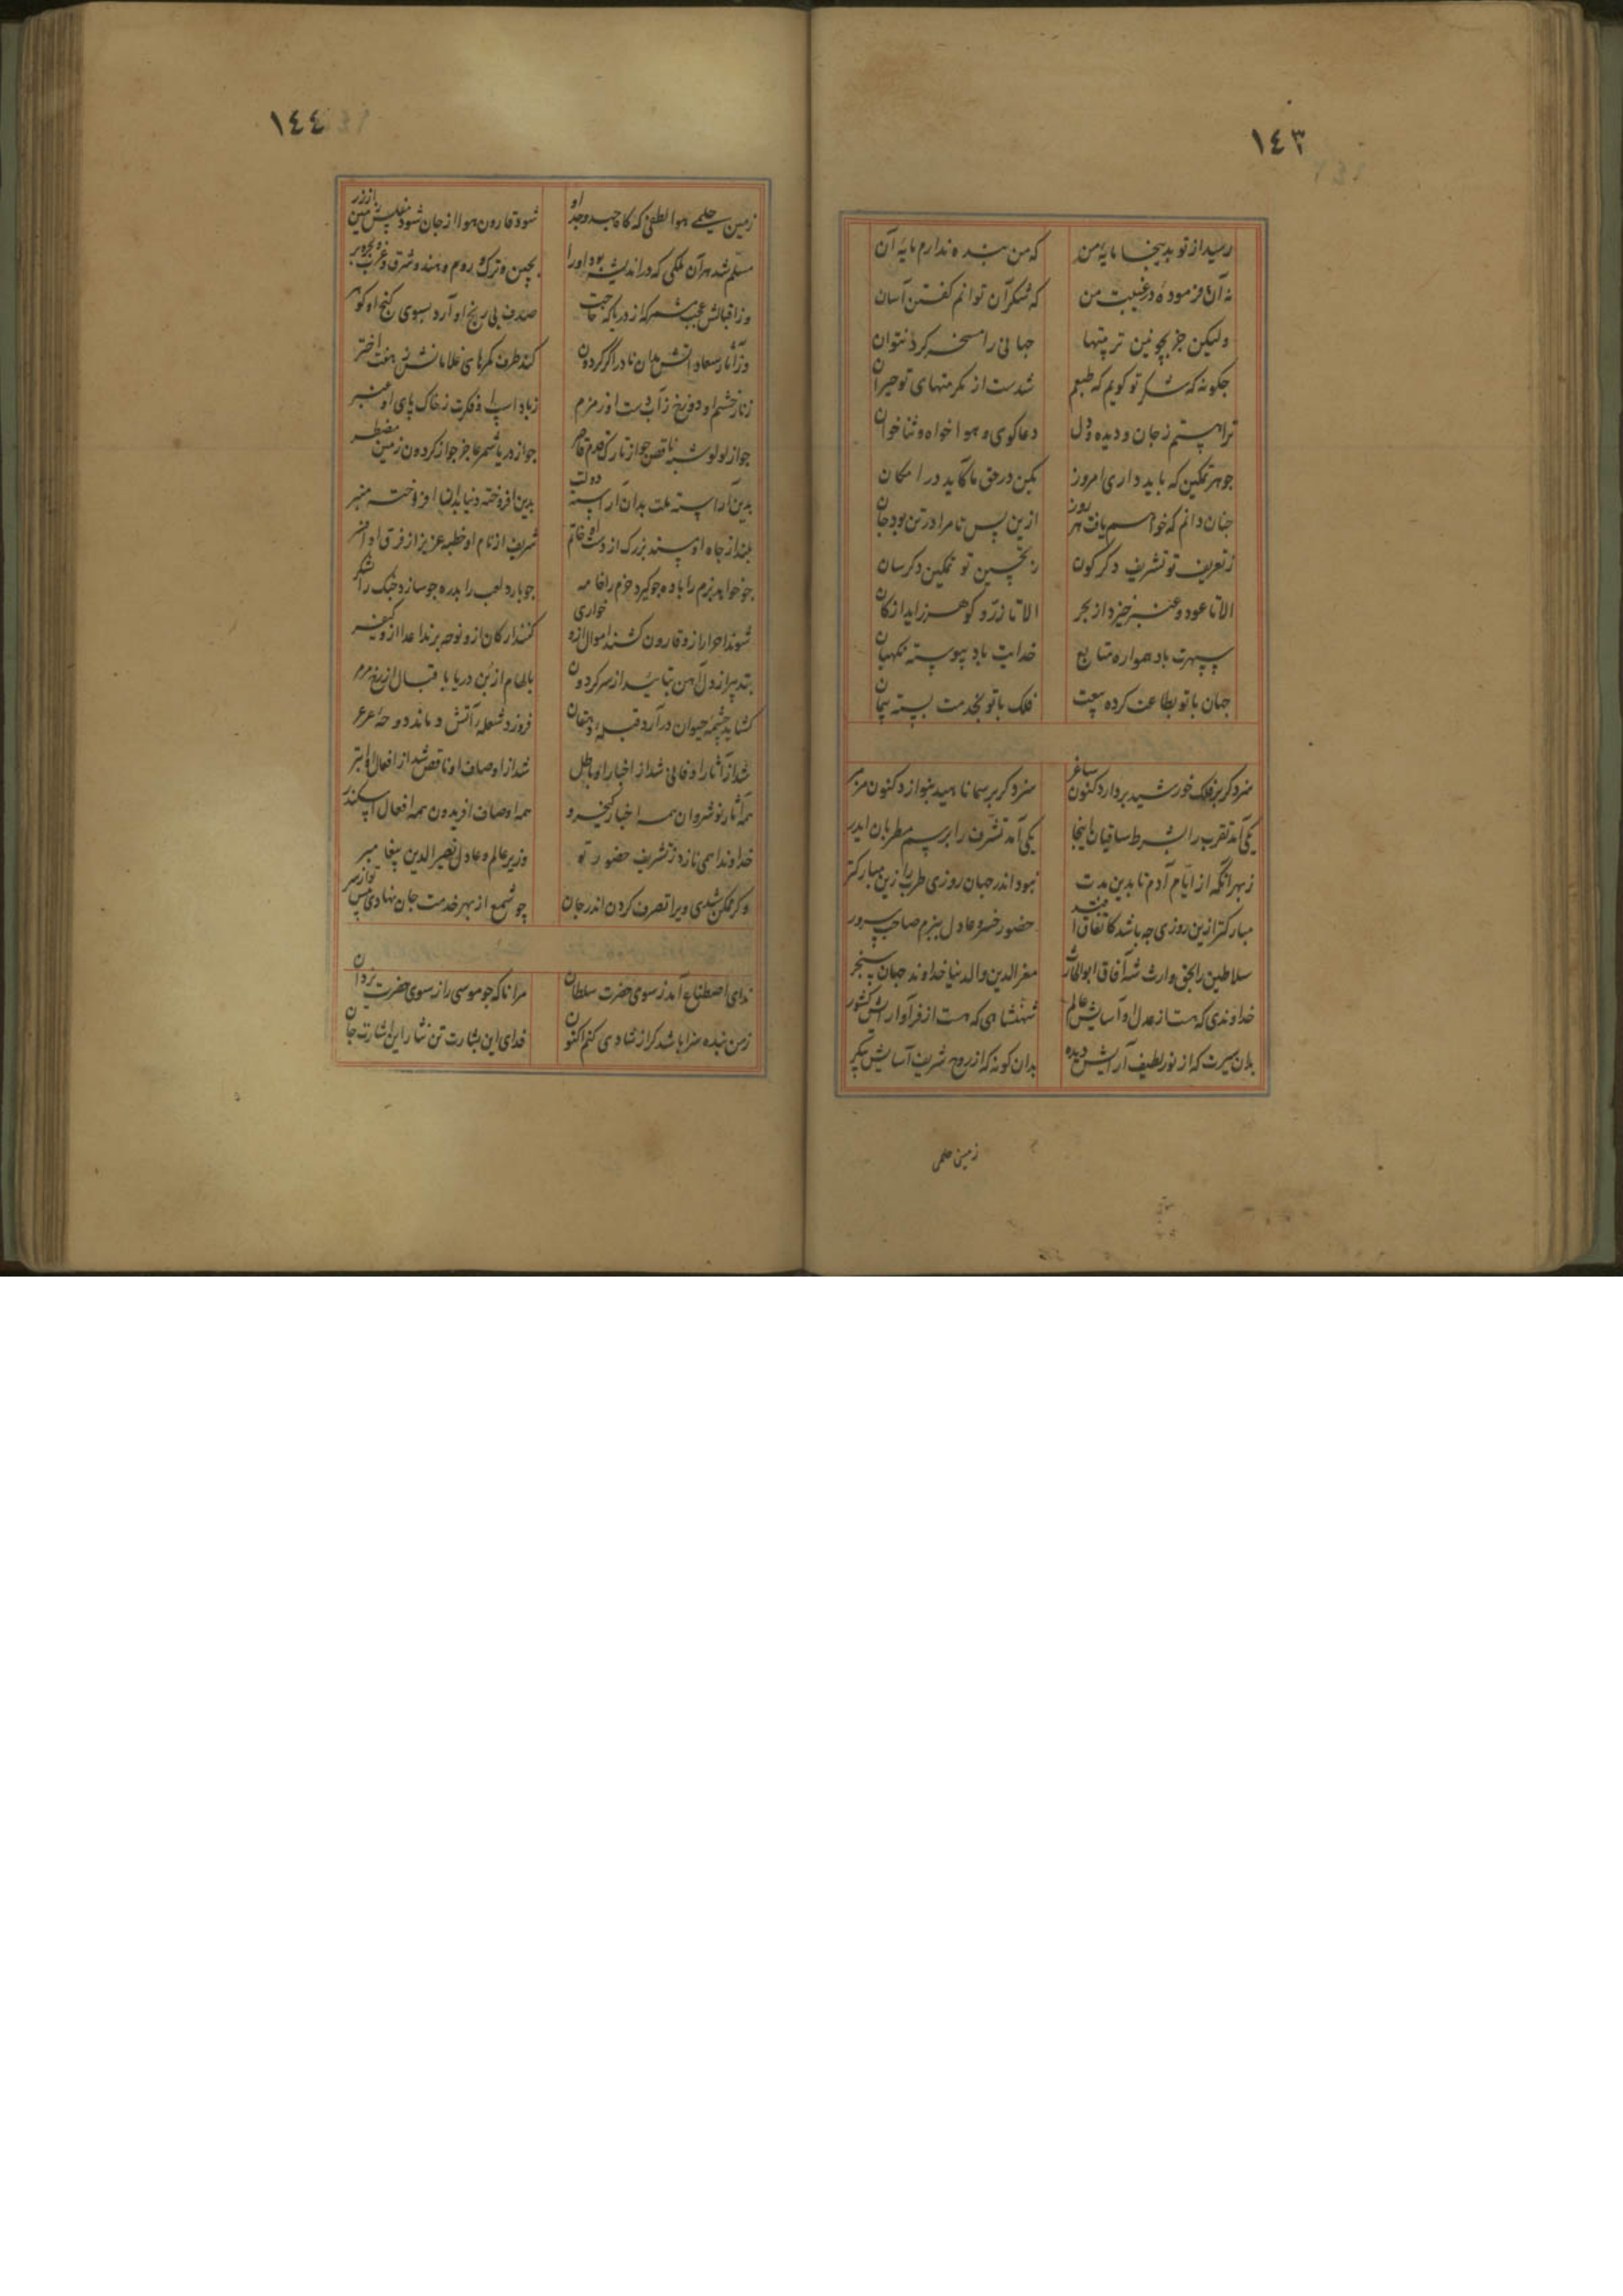 ١٤٣
رسید از تو بدینجا مایهٔ من که من بنده ندارم مایهٔ آن
نه آن فرمودهٔ در غیبت من که شکر آن توانم گفتن آسان
ولیکن جز بچونین تربیتها جهانی را مسخر کرد نتوان
چکونه که شکر تو کویم که طبعم شدست از مکرمتهای تو حیران
ترا هستم ز جان و دیده و دل دعا کوی و هوا خواه و ثنا خوان
جوهر تمکین که باید داری امروز بکن در حق ما کاید در امکان
چنان دانم که خواهم یافت هر روز ازین پس نامرا در تن بود جان
ز تعریف تو تشریف دکرکون ز تحسین تو تمکین دکرسان
الا تا عود و عنبر خیزد از بحر الا تا زر و کوهر زاید از کان
سپهرت باد همواره متابع خدایت باد پیوسته نکهبان
جهان با تو بطاعت کرده بیعت فلک با تو بخدمت بسته پیمان
سزد کر بر فلک خورشید بردارد کنون ساغر سزد کر بر سما ناهید بنوازد کنون مزمر
یکی آمد تقرب را بشرط ساقیان اینجا یکی آمد تشرف را برسم مطربان ایدر
ز بهر آنکه از ایام آدم تا بدین مدت نبود اندر جهان روزی طرب را زین مبارکتر
مبارکتر ازین روزی چه باشد کاتفاق افتد حضور خسرو عادل ببزم صاحب سرور
سلاطین را بحق وارث شه آفاق ابوالحارث معزالدین والدنیا خداوند جهان سنجر
خداوندی که هست از عدل او آسایش عالم شهنشاهی که هست از فر او آرایش کشور
بدان سیرت که از نور لطیف آرایش دیده بدان کونه که از روح شریف آسایش پیکر
زمین حلمی
١٤٤
زمین حلمی هوا لطفی که کاه جود و جد او شود قارون هوا از جان شود مفلس زمین از زر
مسلم شد هر آن ملکی که در اندیشه بود او را بچین و ترک و روم و هند و شرق و غرب و بحر و بر
وز اقبالش عجب نشمر که از دریا که حاجت صدف بی رنج او آرد بسوی کنج او کوهر
وز آثار سعاداتش مدان نادر اکر کردون کند طرف کمرهای غلامانش ز هفت اختر
ز نار خشم او دوزخ ز آب دست او زمزم ز باد اسپ او فکرت ز خاک پای او عنبر
جدول
بدین آراسته ملت بدان آراسته دولت بدین افروخته دنیا بدان افروخته منبر
بلند از جاه او مسند بزرک از دست او خاتم شریف از نام او خطبه عزیز از فرق او افسر
چو خواهد بزم را باده چو کیرد خرم را خامه چو بارد لعب را بدره چو سازد جنک را لشکر
شوند احرار ازو قارون کشند اموال ازو خواری کنند ارکان ازو نوحه برند اعدا ازو کیفر
بتدبیر از دل آهن بتایید از سر کردون
کشاید چشمهٔ حیوان درآرد قبلهٔ دهقان فروزد شعلهٔ آتش دماند دوحهٔ عرعر
شد از آثار او فانی شد از اخبار او باطل شد از اوصاف او ناقص شد از افعال او ابتر
همه آثار نوشروان همه اخبار کیخسرو همه اوصاف افریدون همه افعال اسکندر
خداوندا همی نازد ز تشریف حضور تو وزیر عالم و عادل نصیرالدین پیغامبر
وکر ممکن شدی ویرا تصرف کردن اندر جان چو شمع از بهر خدمت جان نهادی پس تو از سر
ندای اصطناع آمد ز سوی حضرت سلطان مرا ناکه چو موسی را ز سوی حضرت یزدان
زمن بنده سزا باشد کر از شادی کنم اکنون فدای این بشارت تن نثار این اشارت جان